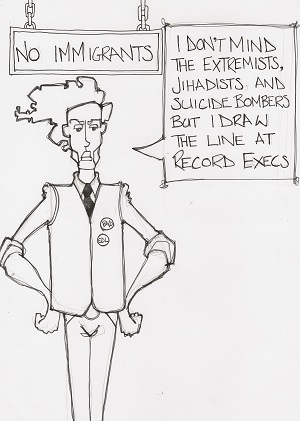 NO IMMIGRANTS
I DON'T MIND
THE EXTREMISTS,
JIHADISTS AND
SUICIDE BOMBERS
BUT I DRAW
THE LINE AT
RECORD EXECS
BNP
EDL